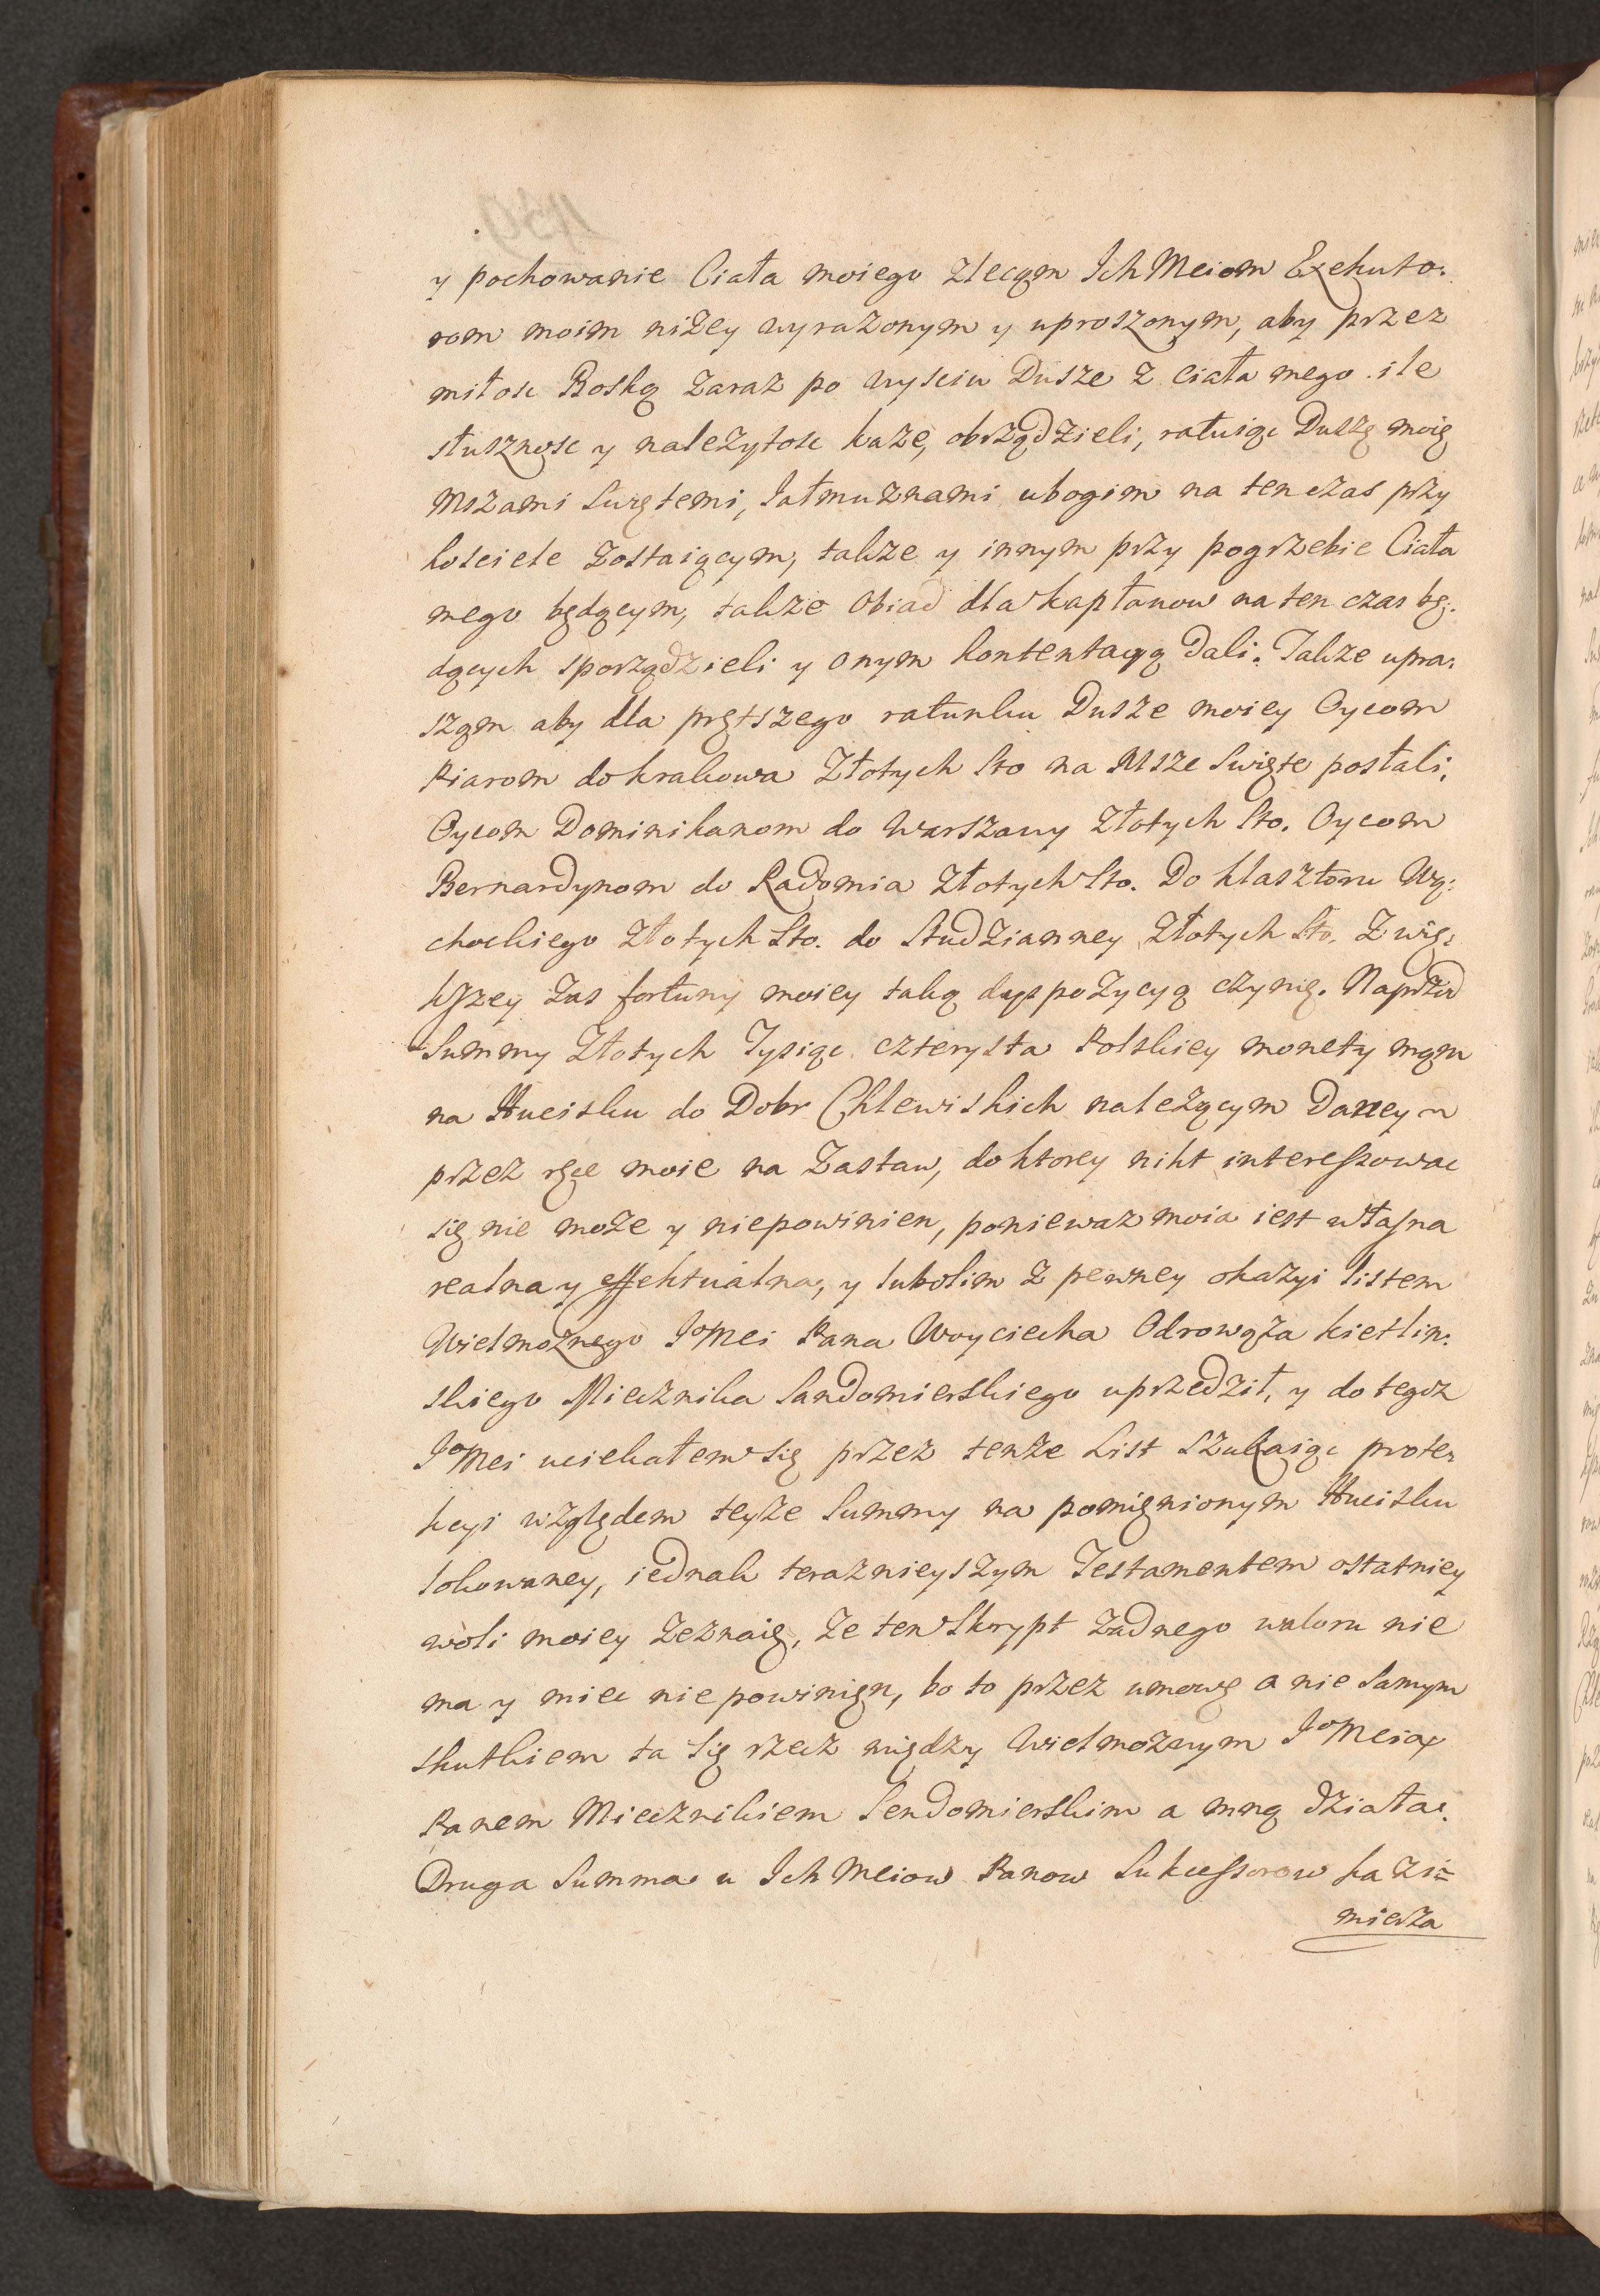 y pochowanie Ciała moiego zlecąm Ich Meiom Exekuto:
rom moim niżey wyrazonym y uproszonym, aby przez
miłosc Boską zaraz po wysciu Dusze z ciała mego ile
słusznosc y nalezytosc kaze, obrządzieli, ratuiąc Duszę moię
Mszami Swiętemi, Jałmuznami ubogim na ten czas przy
kosciele zostaiącym, takze y innym przy pogrzebie Ciała
mego będącym, takze Obiad dla kapłanow na ten czas bę:
dących sporządzieli y onym kontentacyą dali. Takze upra:
szam aby dla prętszego ratunku Dusze moiey Oycom
Piarom do krakowa Złotych Sto na Msze Swięte posłali,
Oycom Dominikanom do Warszawy Złotych Sto. Oycom
Bernardynom do Radomia Złotych Sto. Do klasztoru Wą:
chockiego Złotych Sto. do Studzianney Złotych Sto. Z wię:
kszey zas fortuny moiey taką dyspozycyą czynię. Naprzod
Summy Złotych Tysiąc czterysta Polskiey monety mąm
na Hucisku do Dobr Chlewiskich nalezącym Daney
przez ręce moie na Zastaw, do ktorey nikt interessowac
się nie moze y niepowinien, poniewaz moia iest własna
realna y effektualna, y lubolim z pewney okazyi listem
Wielmoznego JoMei Pana Woyciecha Odrowąża kietlin:
skiego Miecznika Sandomierskiego uprzedził, y do tegoz
JoMei uciekałem się przez tenze List szukaiąc prote:
kcyi względem teyze Summy na pomięnionym Hucisku
lokowaney, iednak teraznieyszym Testamentem ostatniey
woli moiey zeznaię, ze ten Skrypt zadnego waloru nie
ma y miec nie powinięn, bo to przez umowę a nie samym
skutkiem ta się rzecz między Wielmoznym JoMcią
Panem Miecznikiem Sendomierskim a mną działa.
Druga Summa u Ich Meiow Panow Sukcessorow kazi=
mierza